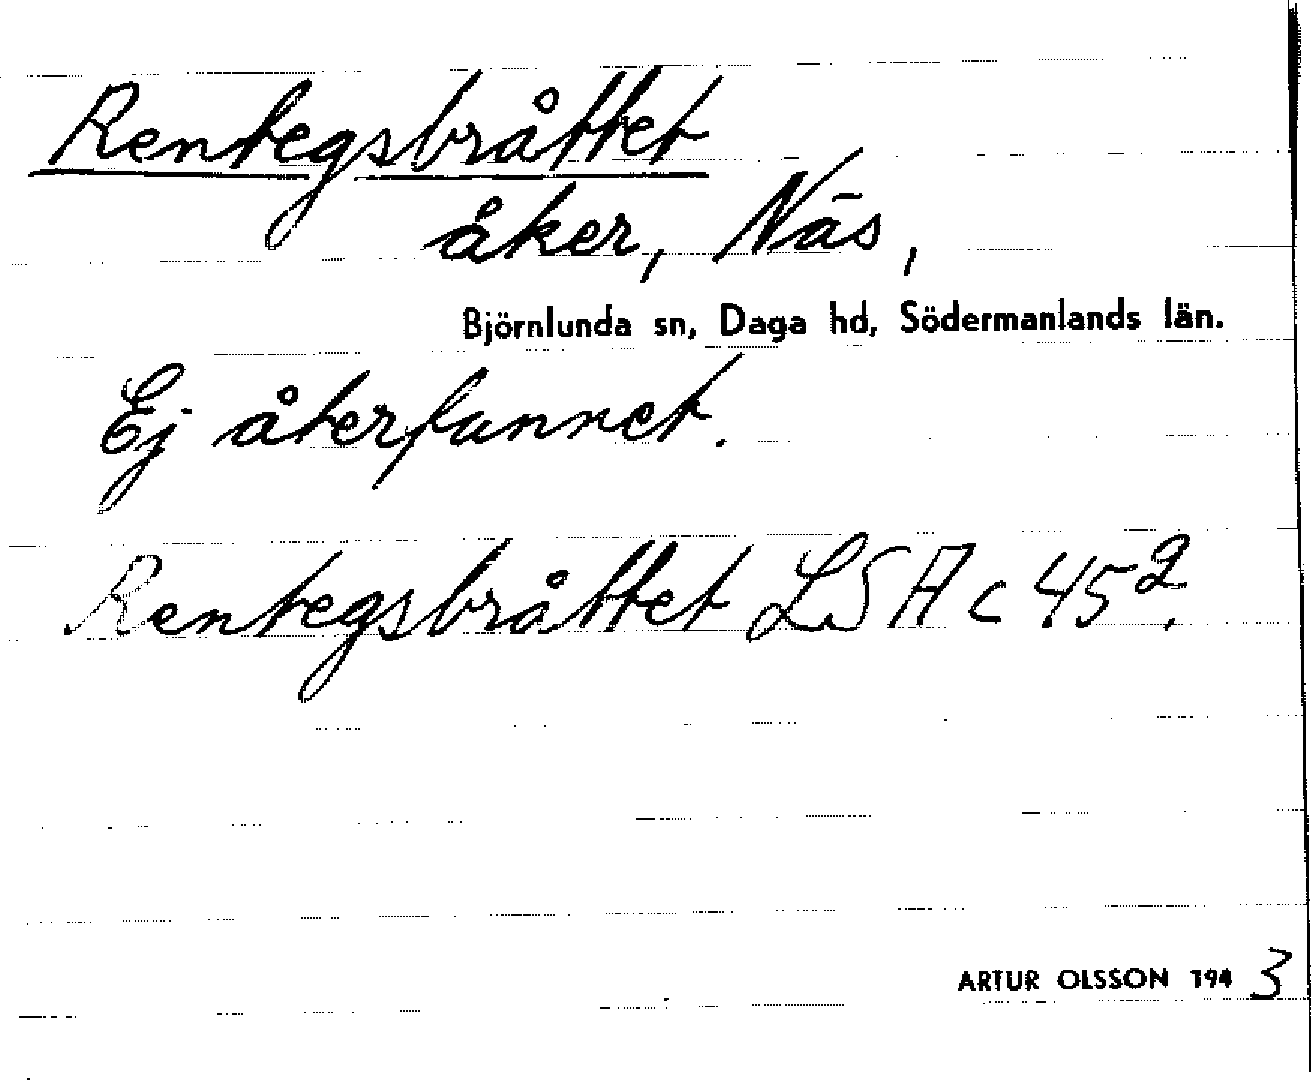 Rentegsbråttet
åker, Näs,
Björnlunda sn, Daga hd, Södermanlands län.
Ej återfunnet.
Rentegsbråttet LSA c 45².
ARTUR OLSSON 1943